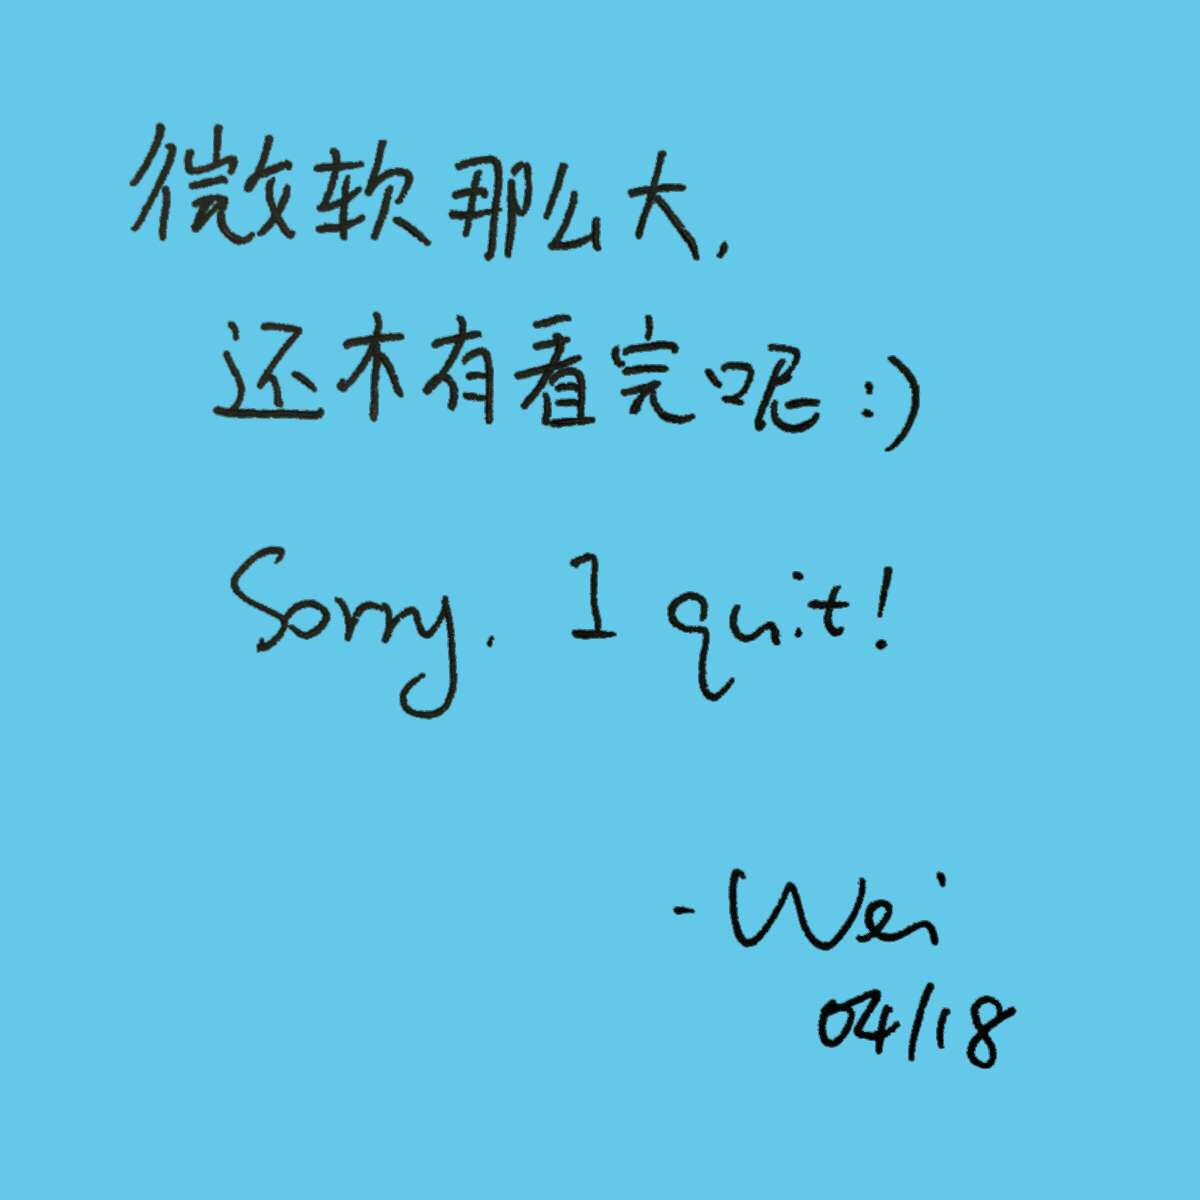 微软那么大,
还木有看完呢:)
Sorry. I quit!
- Wei
04/18